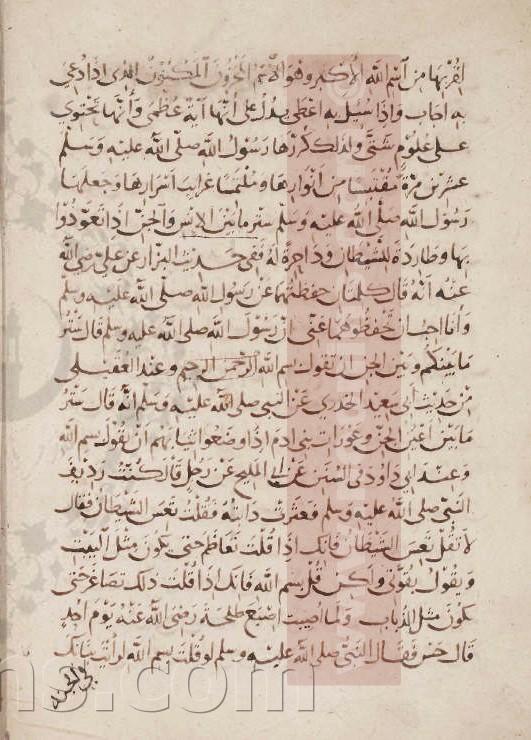 اقربها من اسم الله الاكبر وهو الاسم المخزون المكنون الذى اذا دعي
به اجاب واذا سيل به اعطى يدل على انها آية عظمى وانها تحتوي
على علوم شتى ولذلك كررها رسول الله صلى الله عليه وسلم
عشرين مرة مقتبسا من انوارها وملتمسا غرايب اسرارها وجعلها
رسول الله صلى الله عليه وسلم ستر ما بين الانس والجن اذا تعوذوا
بها وطاردة للشيطان وداحرة له ففى حديث البزار عن على رضى الله
عنه انه قال كلمتان حفظتهما عن رسول الله صلى الله عليه وسلم
وانا احب ان تحفظوهما عنى ان رسول الله صلى الله عليه وسلم قال ستر
ما بينكم وبين الجن ان تقول بسم الله الرحمن الرحيم وعند العقيلى
من حديث ابى سعيد الخدرى عن النبي صلى الله عليه وسلم انه قال ستر
ما بين اعين الجن وعورات بنى ادم اذا وضعوا ثيابهم ان يقول بسم الله
وعند ابى داود فى السنن عن ابى المليح عن رجل قال كنت رديف
النبي صلى الله عليه وسلم فعثرت دابته فقلت تعس الشيطان فقال
لا تقل تعس الشيطان فانك اذا قلت تعاظم حتى يكون مثل البيت
ويقول بقوتى ولكن قل بسم الله فانك اذا قلت ذلك تصاغر حتى
يكون مثل الذباب ولما اصيبت اصبع طلحة رضى الله عنه يوم احد
قال حس فقال النبي صلى الله عليه وسلم لو قلت بسم الله لرأيت بناءك
فى الجنة
ns.com